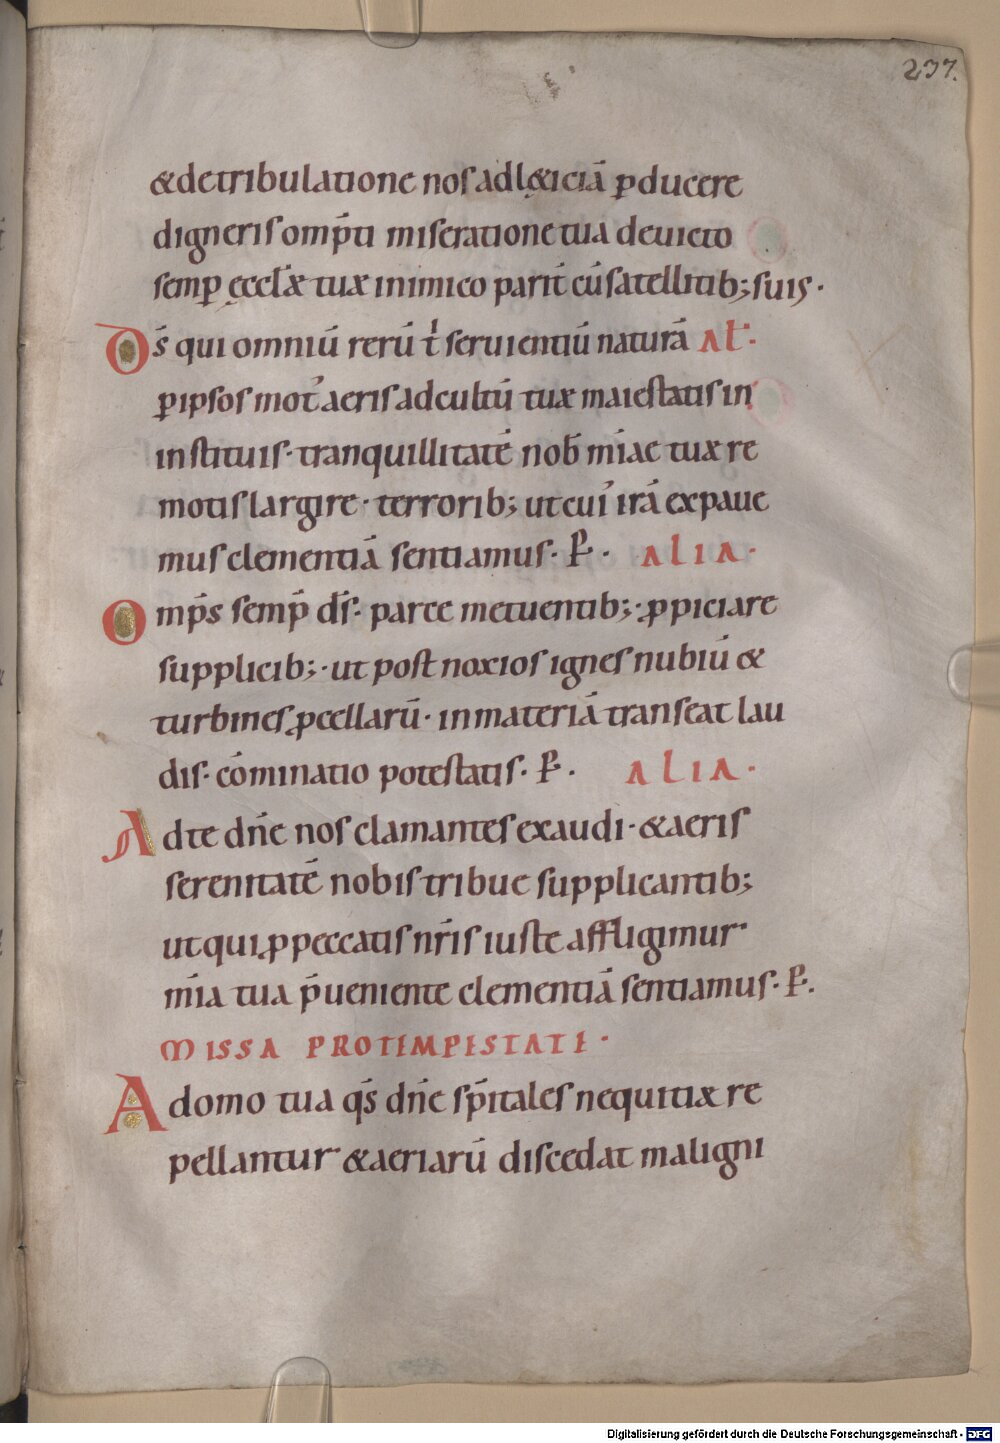 237.
&detribulatione nos adl&iciā ꝑducere
digneris omp̄ti miseratione tua deuicto
semꝑ ęcclæ tuæ inimico parit̄ cū satellitib; suis.
D̄s qui omniū rerū t' seruientiū naturā AL.
ꝑ ipsos mot' aeris ad cultū tuæ maiestatis in
instituis. tranquillitatē nob̄ m̄iae tuæ re
motis largire. terrorib; ut cui' irā expaue
mus clementiā sentiamus. P̄. ALIA.
Omp̄s semp̄ d̄s. parce metuentib;. ꝓpiciare
supplicib;. ut post noxios ignes nubiū &
turbines ꝓcellarū. in materiā transeat lau
dis. cōminatio potestatis. P̄. ALIA.
Ad te dn̄e nos clamantes exaudi. & aeris
serenitatē nobis tribue supplicantib;
ut qui ꝓ peccatis nr̄is iuste affligimur
m̄ia tua p̄ueniente clementiā sentiamus. P̄.
MISSA PRO TEMPESTATE.
A domo tua qs̄ dn̄e sp̄itales nequitiæ re
pellantur & aeriarū discedat maligni
Digitalisierung gefördert durch die Deutsche Forschungsgemeinschaft - DFG